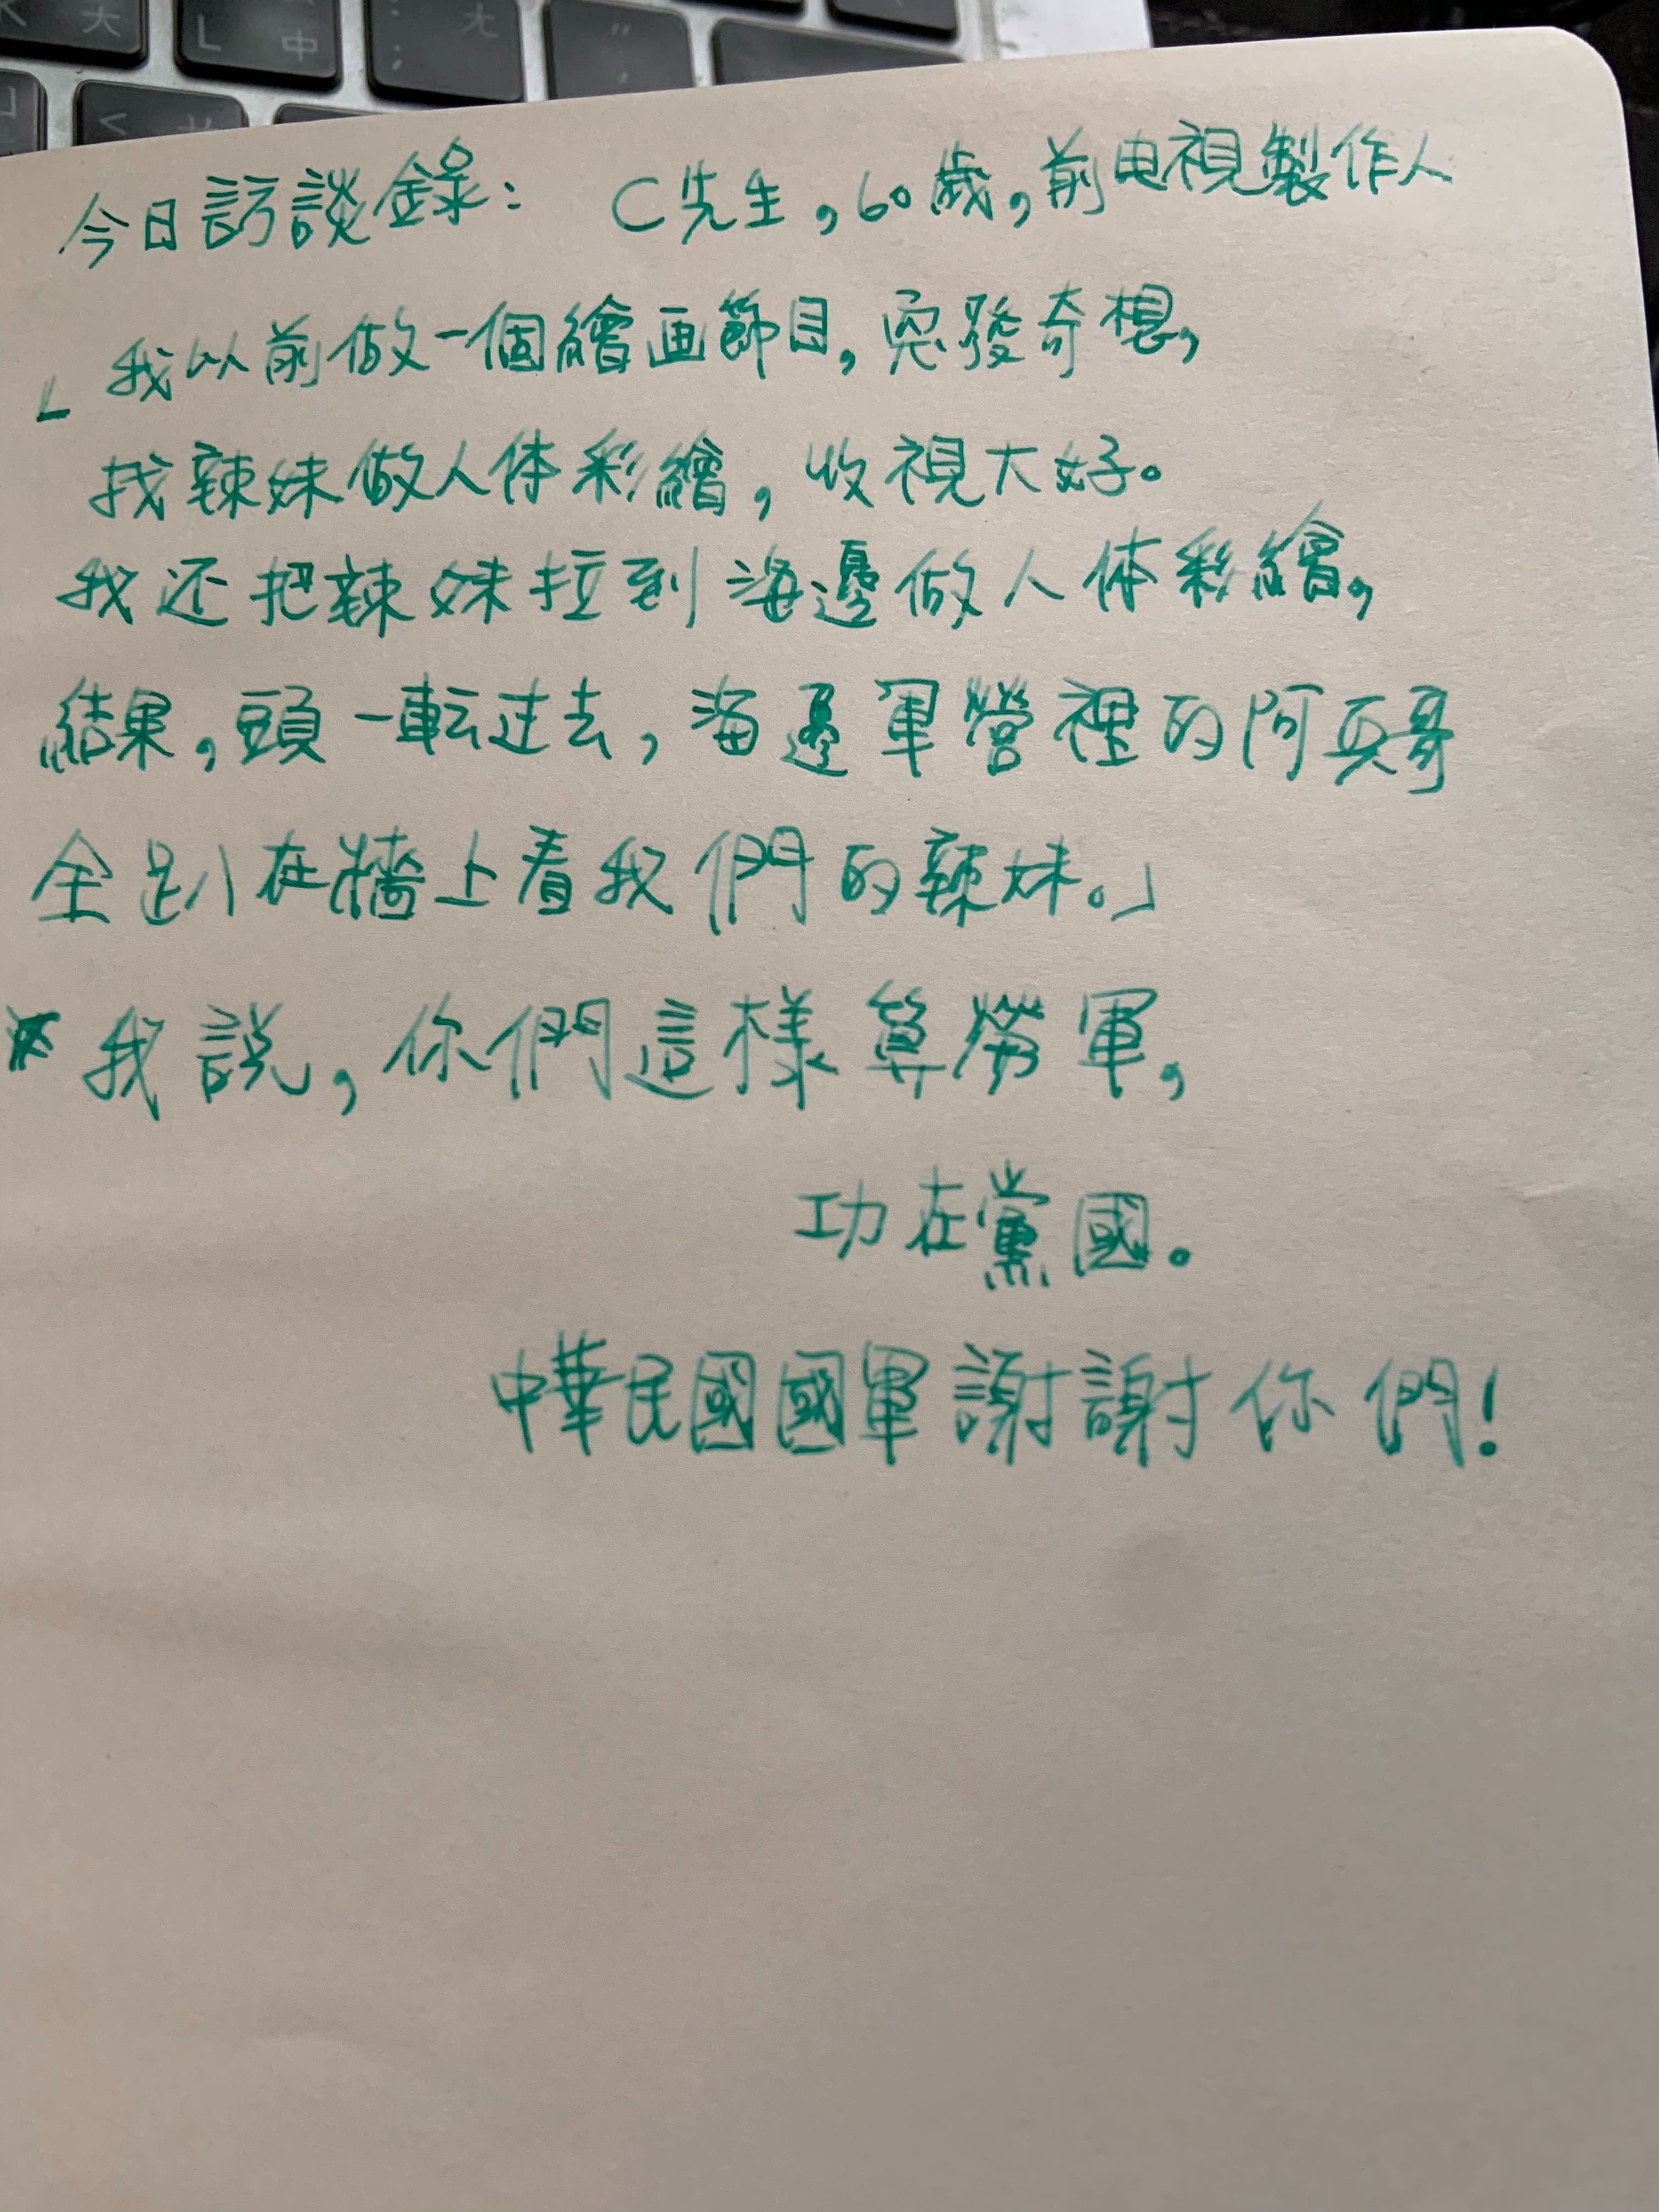 ㄤ
ㄥ
L
ㄠ
;
"
'
<
今日訪談錄： C先生，60歲，前电視製作人
「我以前做一個繪画節目，突發奇想，
找辣妹做人体彩繪，收視大好。
我还把辣妹拉到海邊做人体彩繪，
結果，頭一転过去，海邊軍營裡的阿兵哥
全趴在牆上看我們的辣妹。」
*我說，你們這樣算勞軍，
功在黨國。
中華民國國軍謝謝你們！